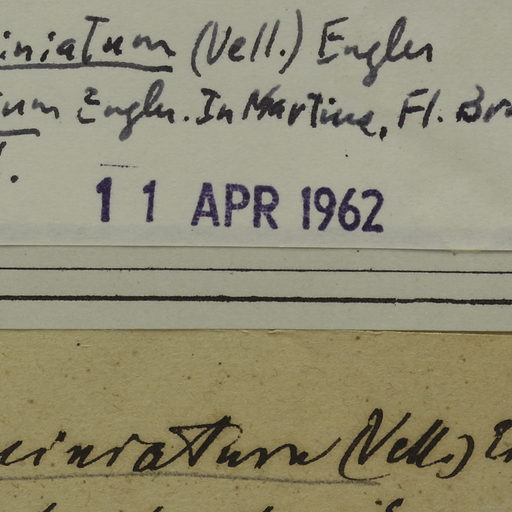 iniatum (Vell.) Engler
um Engler. In Martius, Fl. Bra
11 APR 1962
iniatum (Vell.) En